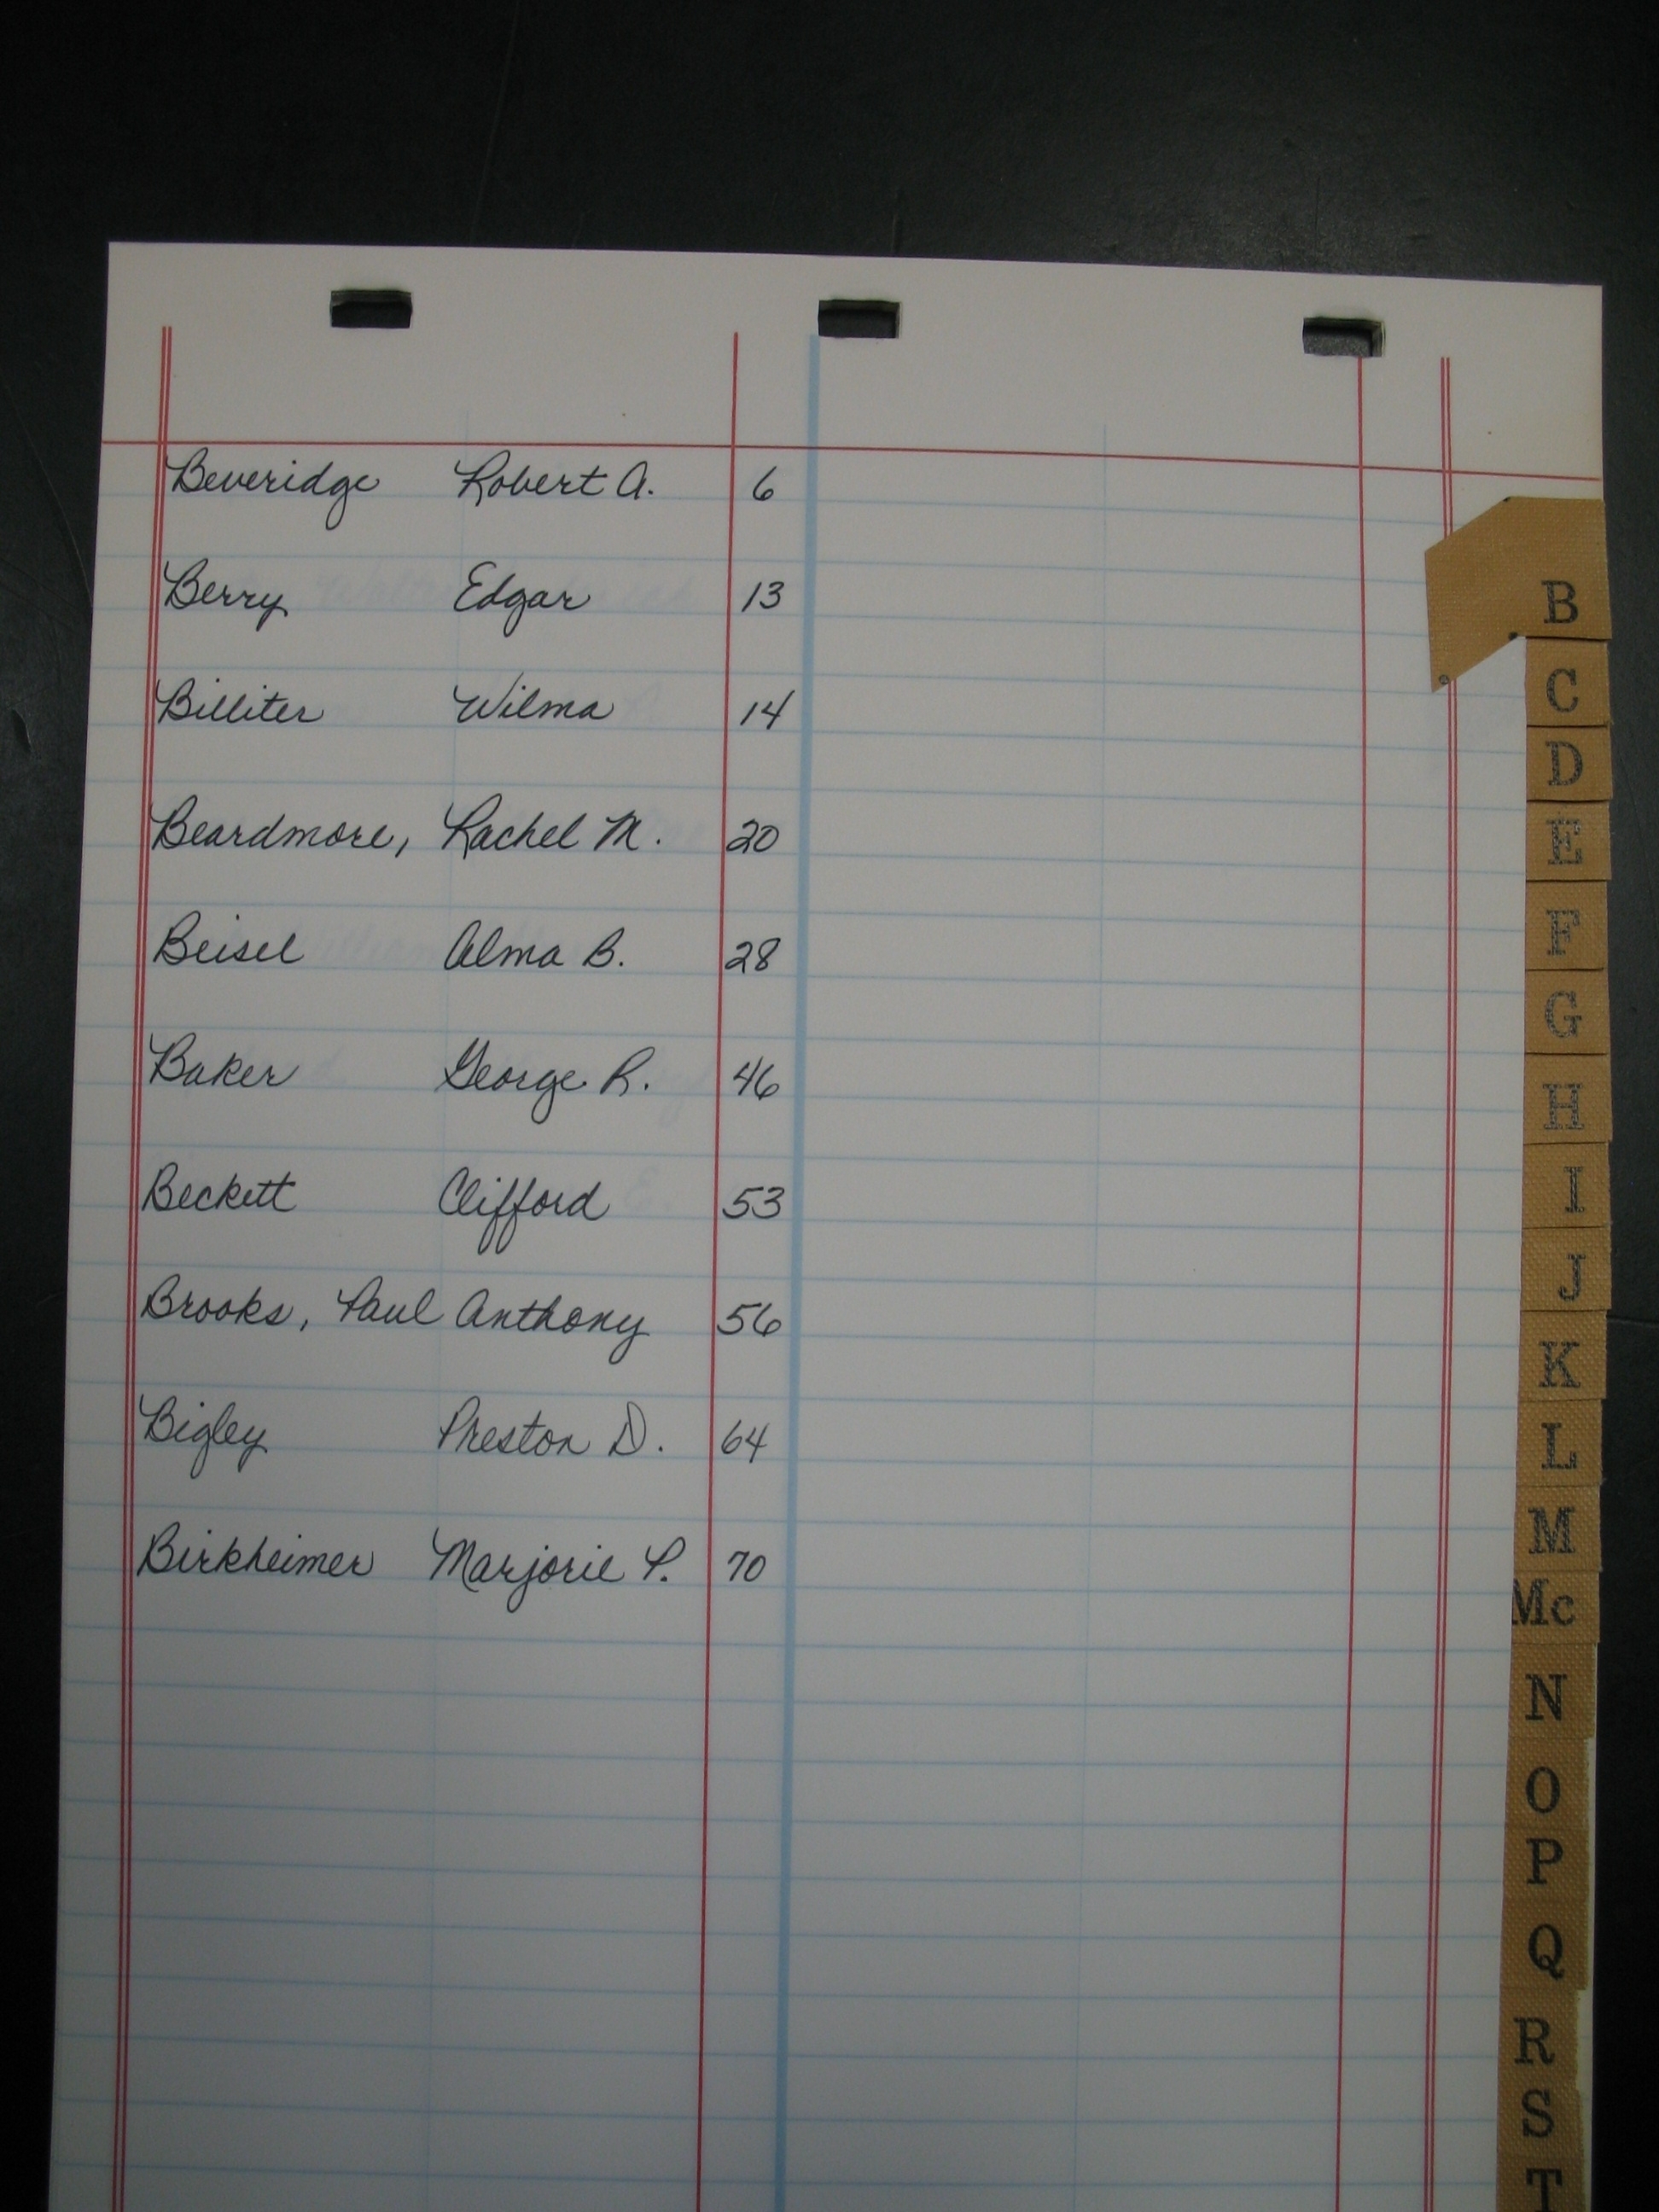 Beveridge Robert A. 6
Berry Edgar 13
Billiter Wilma 14
Beardmore, Rachel M. 20
Beisel Alma B. 28
Baker George R. 46
Beckett Clifford 53
Brooks, Paul Anthony 56
Bigley Preston D. 64
Birkheimer Marjorie P. 70
B
C
D
E
F
G
H
I
J
K
L
M
Mc
N
O
P
Q
R
S
T